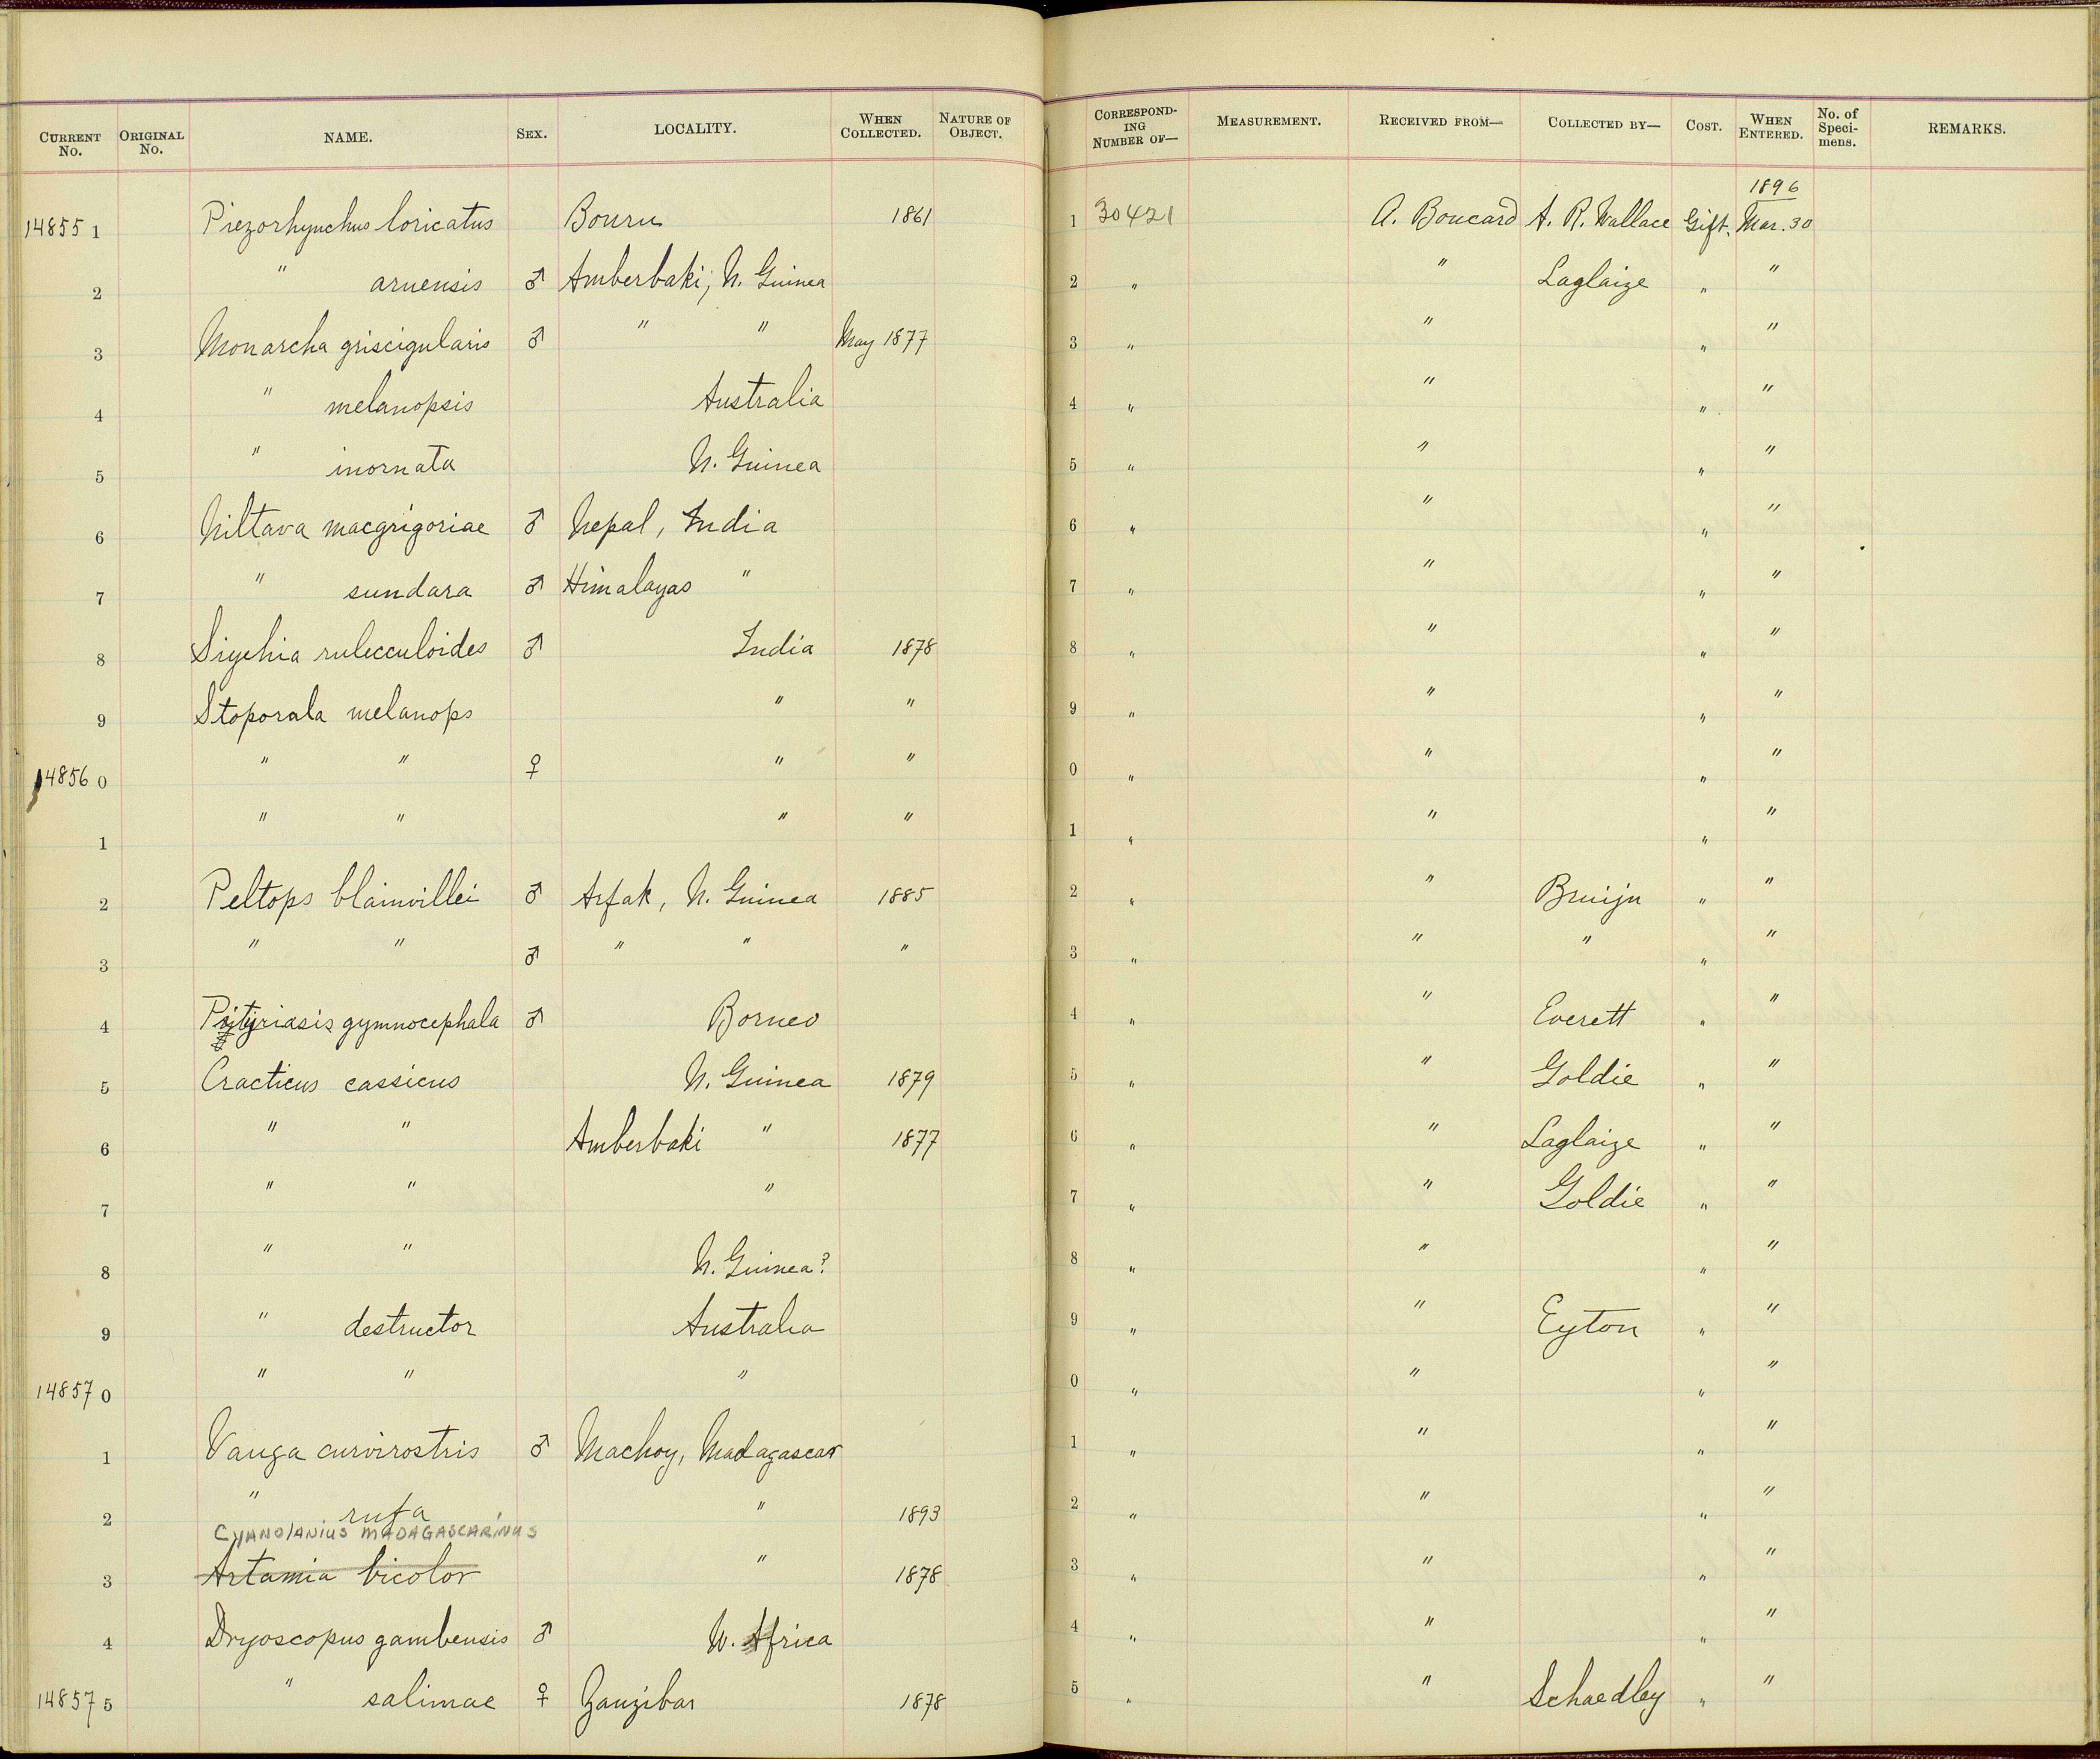 CURRENT No. ORIGINAL No. NAME. SEX. LOCALITY. WHEN COLLECTED. NATURE OF OBJECT. CORRESPONDING NUMBER OF— MEASUREMENT. RECEIVED FROM— COLLECTED BY— COST. WHEN ENTERED. No. of Speci-mens. REMARKS.
1896
14855 1 Piezorhynchus loricatus Bouru 1861 1 30421 A. Boucard A. R. Wallace Gift. Mar. 30
2 " aruensis ♂ Amberbaki, N. Guinea 2 " " Laglaize " "
3 Monarcha griscigularis ♂ " " May 1877 3 " " " "
4 " melanopsis Australia 4 " " " "
5 " inornata N. Guinea 5 " " " "
6 Niltava macgrigoriae ♂ Nepal, India 6 " " " "
7 " sundara ♂ Himalayas " 7 " " " "
8 Siyehia rulecculoides ♂ India 1878 8 " " " "
9 Stoporala melanops " " 9 " " " "
14856 0 " " ♀ " " 0 " " " "
1 " " " " 1 " " " "
2 Peltops blainvillei ♂ Arfak, N. Guinea 1885 2 " " Bruijn " "
3 " " ♂ " " " 3 " " " " "
4 Pityriasis gymnocephala ♂ Borneo 4 " " Everett " "
5 Cracticus cassicus N. Guinea 1879 5 " " Goldie " "
6 " " Amberbaki " 1877 6 " " Laglaize " "
7 " " " 7 " " Goldie " "
8 " " N. Guinea? 8 " " " "
9 " destructor Australia 9 " " Eyton " "
14857 0 " " " 0 " " " "
1 Vanga curvirostris ♂ Machoy, Madagascar 1 " " " "
2 " rufa " 1893 2 " " " "
CYANOLANIUS MADAGASCARINUS
3 Artamia bicolor " 1878 3 " " " "
4 Dryoscopus gambensis ♂ W. Africa 4 " " " "
14857 5 " salimae ♀ Zanzibar 1878 5 " " Schaedley " "